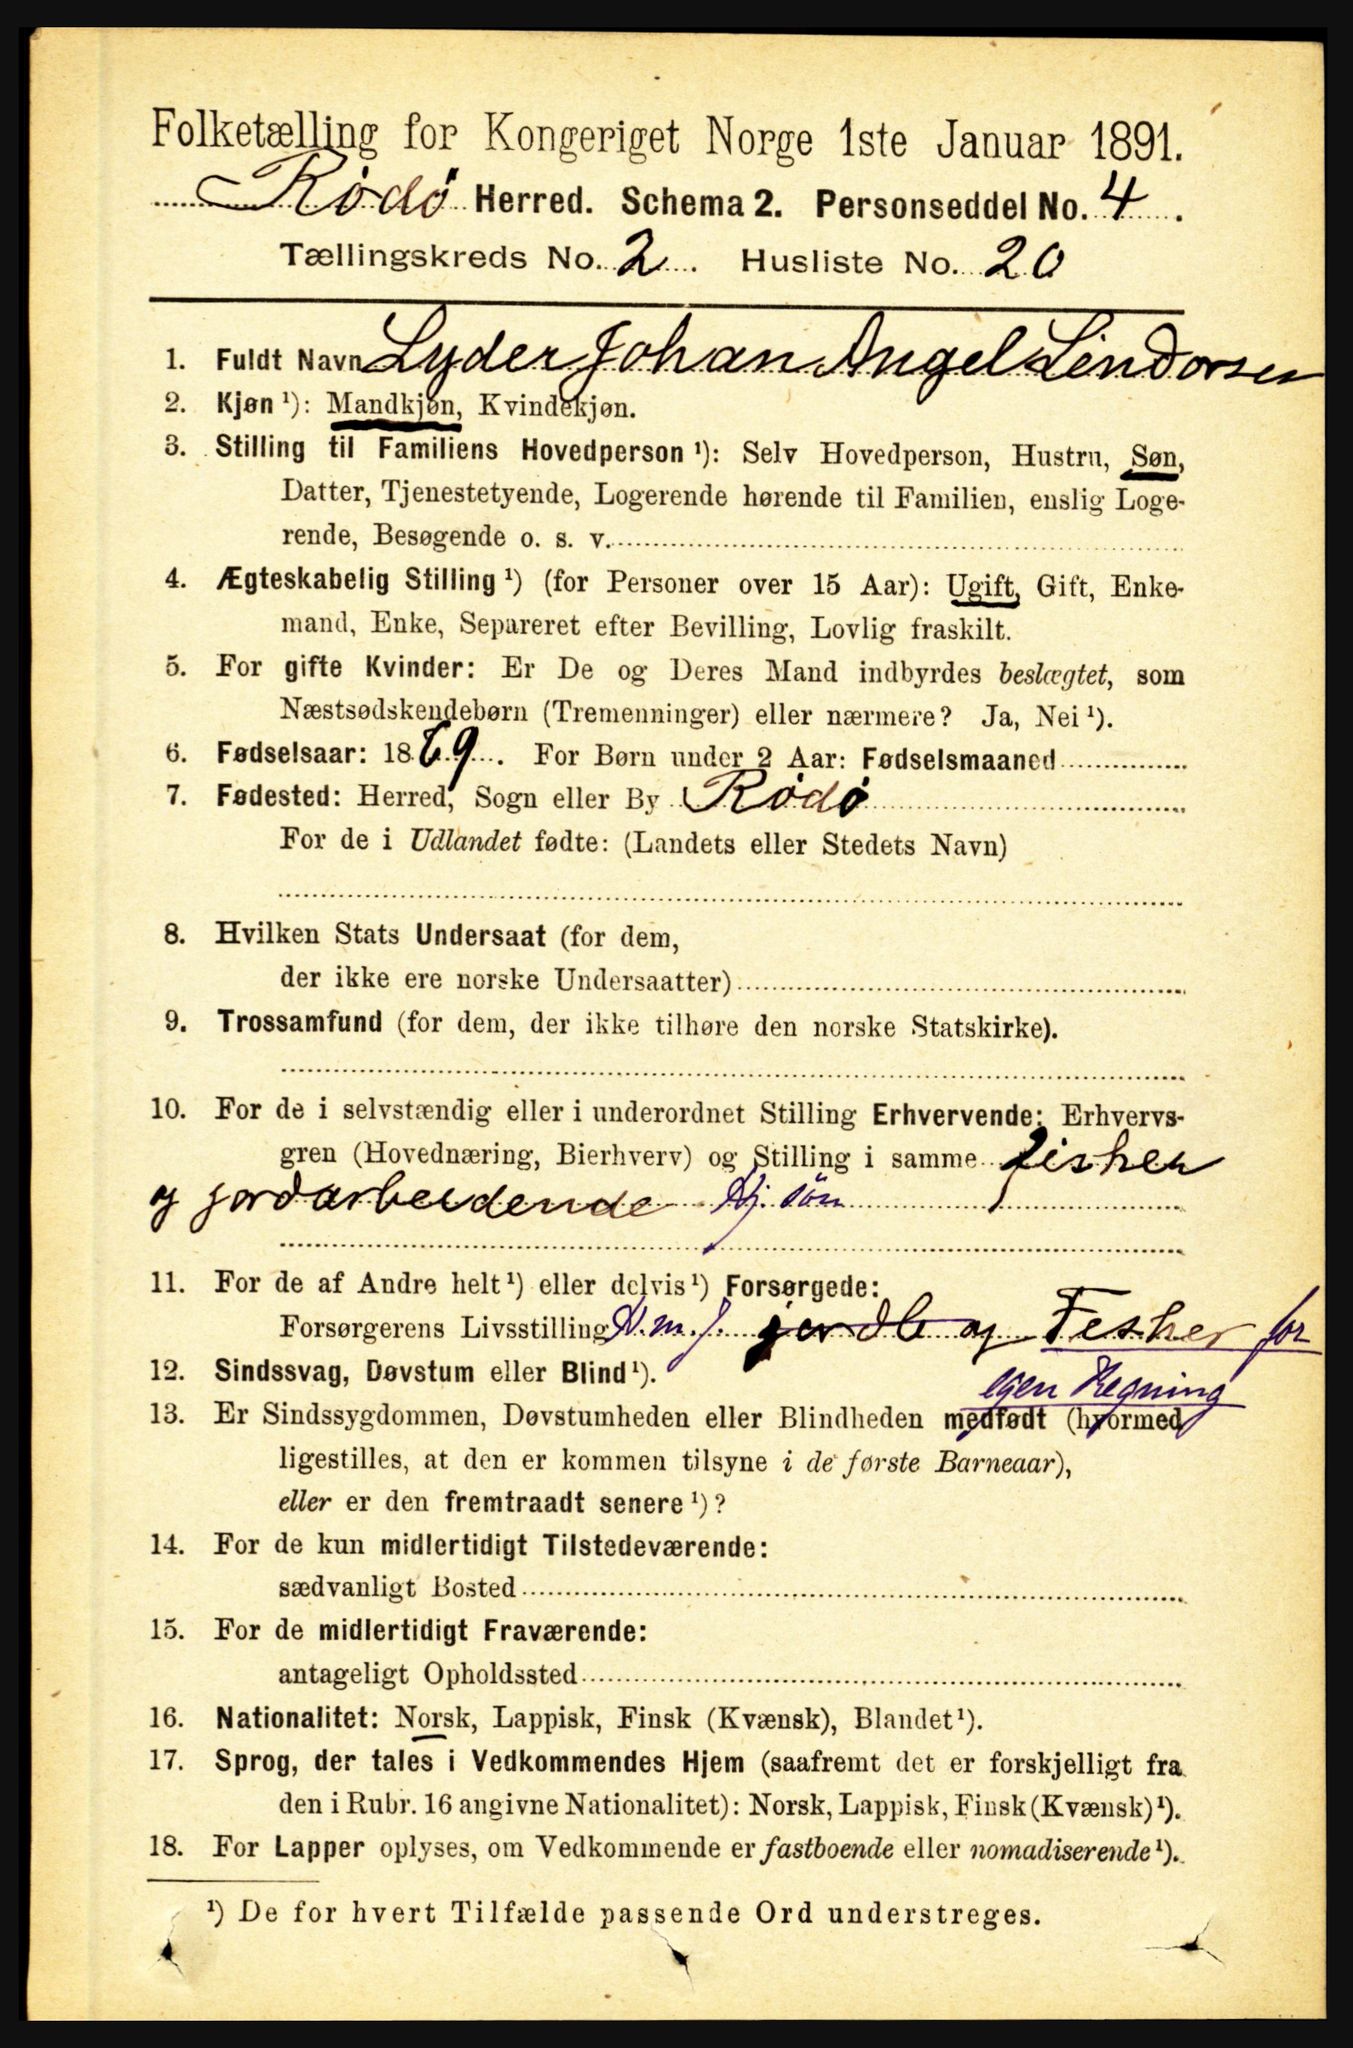 Folketælling for Kongeriget Norge 1ste Januar 1891.
Rödö Herred. Schema 2. Personseddel No. 4.
Tællingskreds No. 2. Husliste No. 20
1. Fuldt Navn Lyder Johan Angel Lindorsen
2. Kjøn ¹): Mandkjøn, Kvindekjøn.
3. Stilling til Familiens Hovedperson ¹): Selv Hovedperson, Hustru, Søn,
Datter, Tjenestetyende, Logerende hørende til Familien, enslig Loge-
rende, Besøgende o. s. v.
4. Ægteskabelig Stilling ¹) (for Personer over 15 Aar): Ugift, Gift, Enke-
mand, Enke, Separeret efter Bevilling, Lovlig fraskilt.
5. For gifte Kvinder: Er De og Deres Mand indbyrdes beslægtet, som
Næstsødskendebørn (Tremenninger) eller nærmere? Ja, Nei ¹).
6. Fødselsaar: 1869. For Børn under 2 Aar: Fødselsmaaned
7. Fødested: Herred, Sogn eller By Rödö
For de i Udlandet fødte: (Landets eller Stedets Navn)
8. Hvilken Stats Undersaat (for dem,
der ikke ere norske Undersaatter)
9. Trossamfund (for dem, der ikke tilhøre den norske Statskirke).
10. For de i selvstændig eller i underordnet Stilling Erhvervende: Erhvervs-
gren (Hovednæring, Bierhverv) og Stilling i samme fisker
og jordarbeidende Hj. søn
11. For de af Andre helt ¹) eller delvis ¹) Forsørgede:
Forsørgerens Livsstilling jordb og Fesker for
egen Regning
12. Sindssvag, Døvstum eller Blind ¹).
13. Er Sindssygdommen, Døvstumheden eller Blindheden medfødt (hvormed
ligestilles, at den er kommen tilsyne i de første Barneaar),
eller er den fremtraadt senere ¹)?
14. For de kun midlertidigt Tilstedeværende:
sædvanligt Bosted
15. For de midlertidigt Fraværende:
antageligt Opholdssted
16. Nationalitet: Norsk, Lappisk, Finsk (Kvænsk), Blandet ¹).
17. Sprog, der tales i Vedkommendes Hjem (saafremt det er forskjelligt fra
den i Rubr. 16 angivne Nationalitet): Norsk, Lappisk, Finsk (Kvænsk) ¹).
18. For Lapper oplyses, om Vedkommende er fastboende eller nomadiserende ¹).
¹) De for hvert Tilfælde passende Ord understreges.